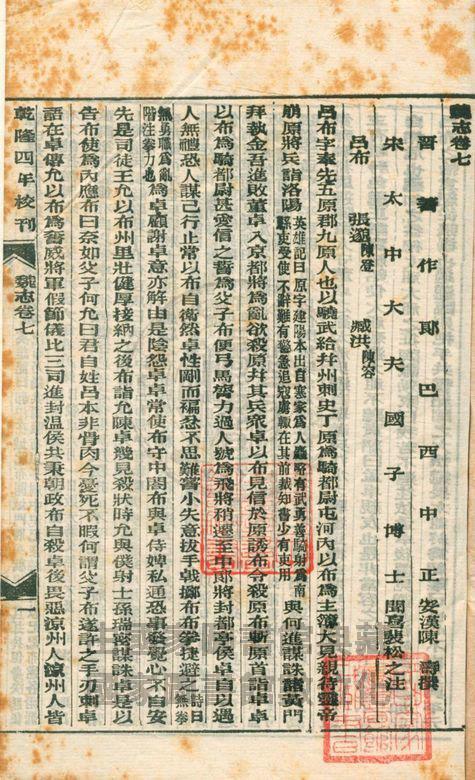 魏志卷七
晉著作郎巴西中正安漢陳壽撰
宋太中大夫國子博士聞喜裴松之注
呂布 張邈陳登 臧洪陳容
呂布字奉先五原郡九原人也以驍武給并州刺史丁原爲騎都尉屯河內以布爲主簿大見親待靈帝
崩原將兵詣洛陽英雄記曰原字建陽本出自寒家爲人麤略有武勇善騎射爲南縣吏受使不辭難有警急追寇虜輒在其前裁知書少有吏用與何進謀誅諸黃門
拜執金吾進敗董卓入京都將爲亂欲殺原并其兵衆卓以布見信於原誘布令殺原布斬原首詣卓卓
以布爲騎都尉甚愛信之誓爲父子布便弓馬膂力過人號爲飛將稍遷至中郎將封都亭侯卓自以遇
人無禮恐人謀己行止常以布自衛然卓性剛而褊忿不思難嘗小失意拔手戟擲布布拳捷避之詩曰無拳
無勇職爲亂階注拳力也爲卓顧謝卓意亦解由是陰怨卓卓常使布守中閤布與卓侍婢私通恐事發覺心不自安
先是司徒王允以布州里壯健厚接納之後布詣允陳卓幾見殺狀時允與僕射士孫瑞密謀誅卓是以
告布使爲內應布曰奈如父子何允曰君自姓呂本非骨肉今憂死不暇何謂父子布遂許之手刃刺卓
語在卓傳允以布爲奮威將軍假節儀比三司進封溫侯共秉朝政布自殺卓後畏惡涼州人涼州人皆
乾隆四年校刊 魏志卷七 一